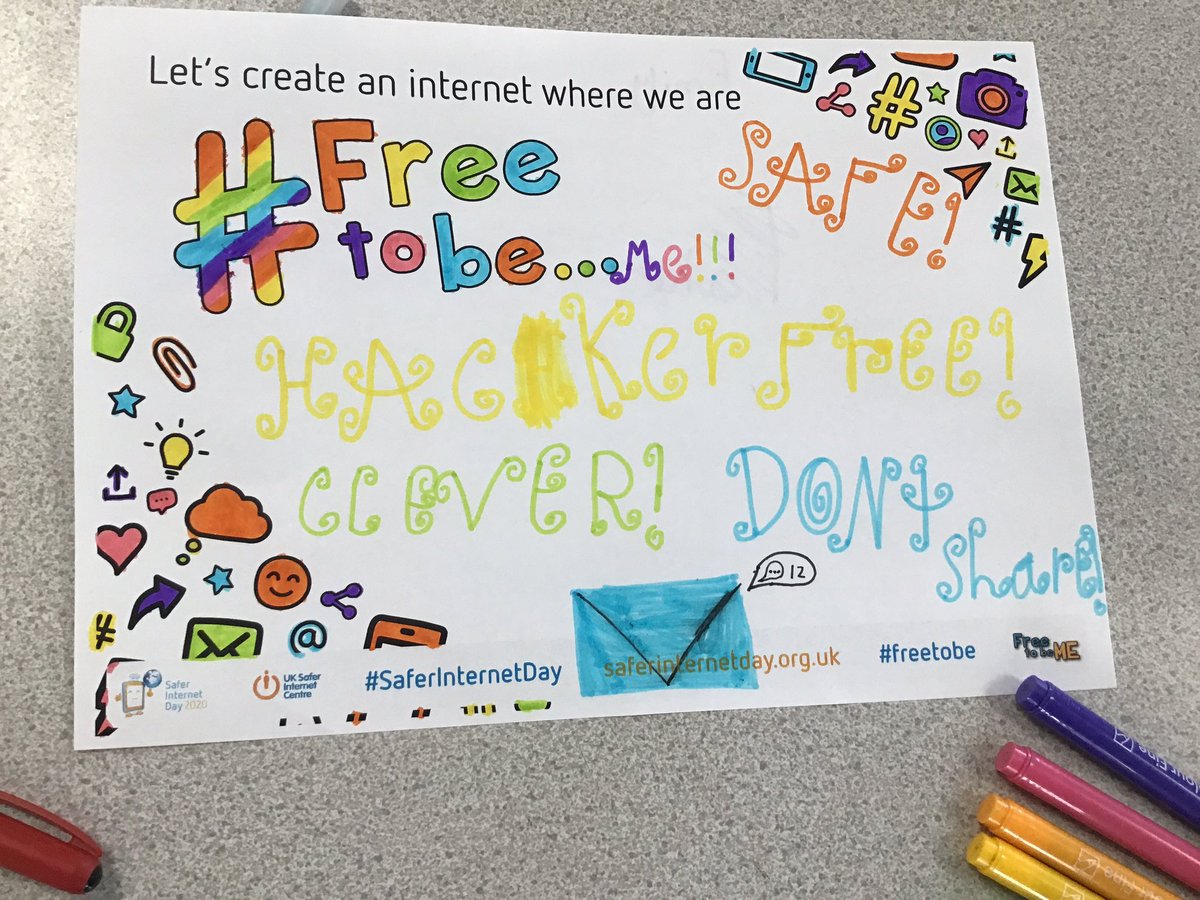 Let's create an internet where we are
#Free
to be...Me!!!
SAFE!
HACKer Free!
CLEVER!
DONt
Share!
12
Safer
Internet
Day 2020
UK Safer
Internet
Centre
#SaferInternetDay
saferinternetday.org.uk
#freetobe
Free
to be ME